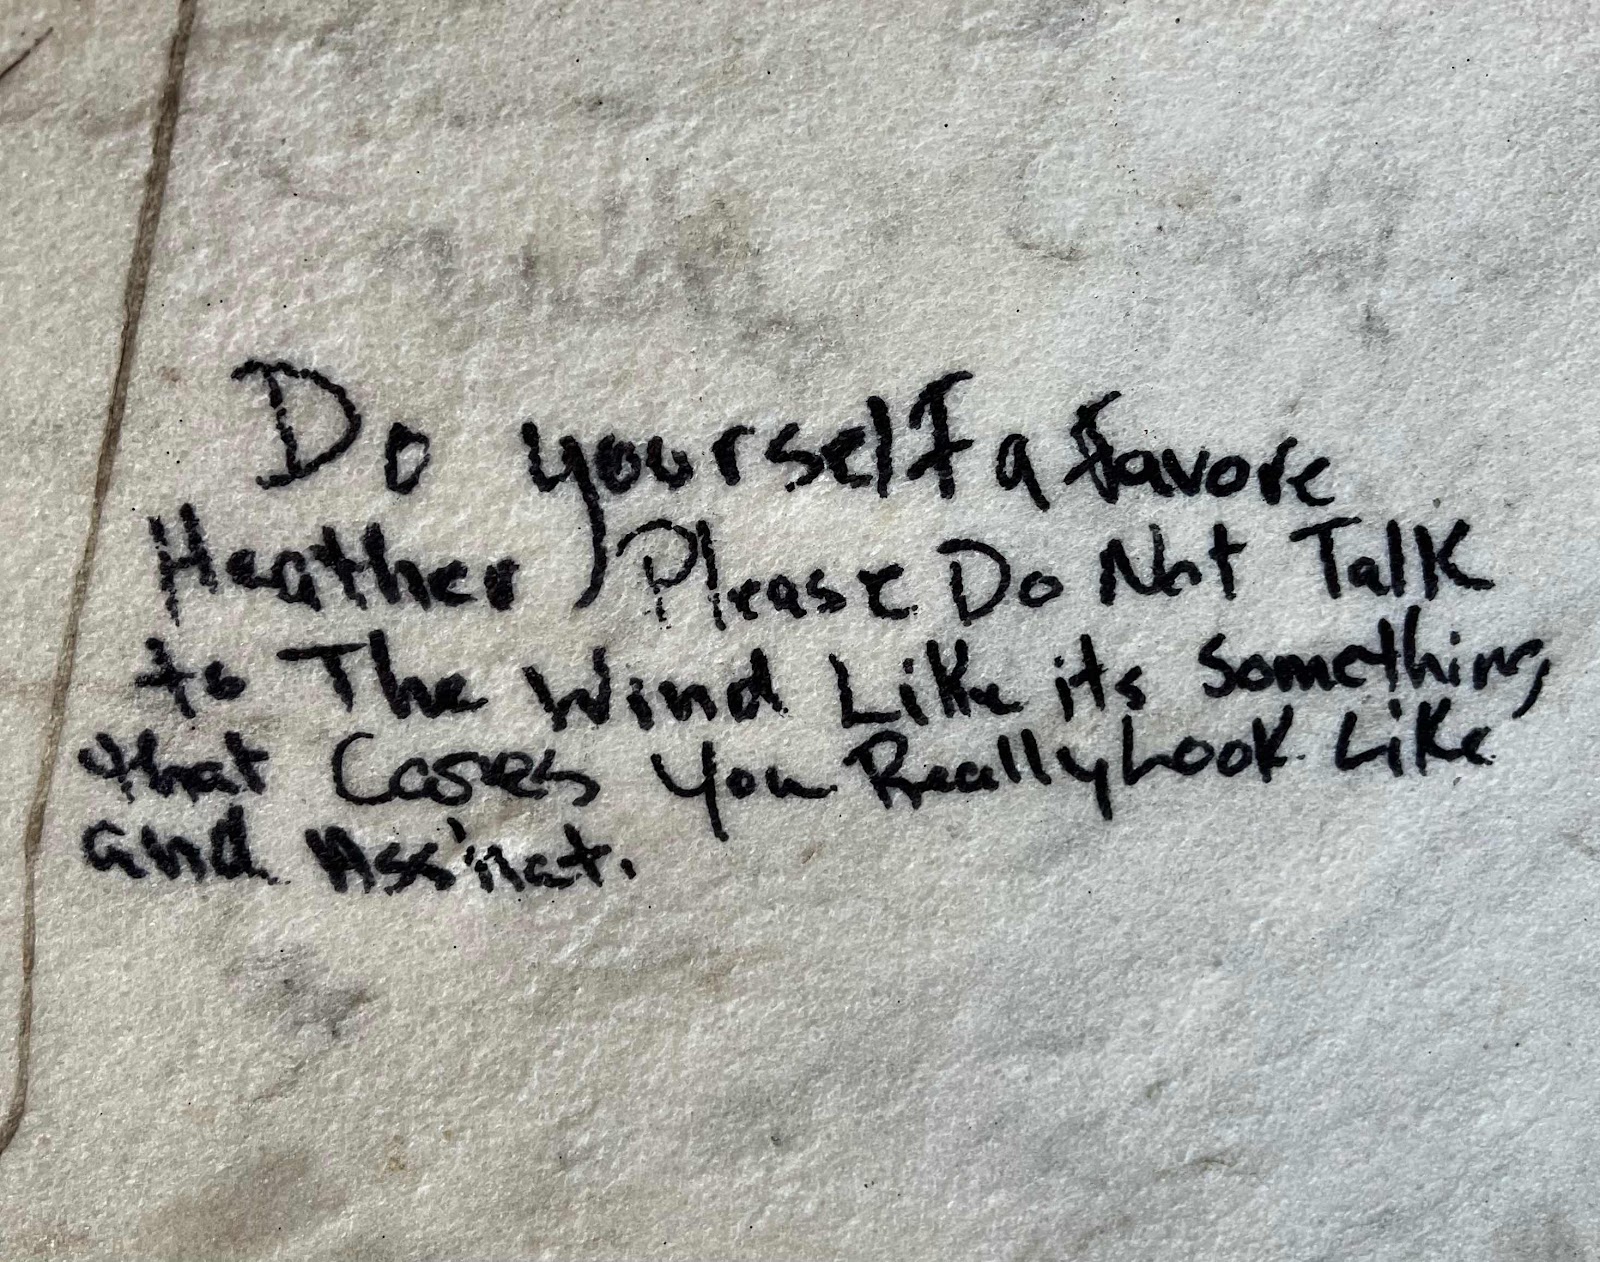 Do yourself a favore
Heather, Please Do Not Talk
to The Wind Like its something
that Coses you Really Look Like
and Ass'nat.